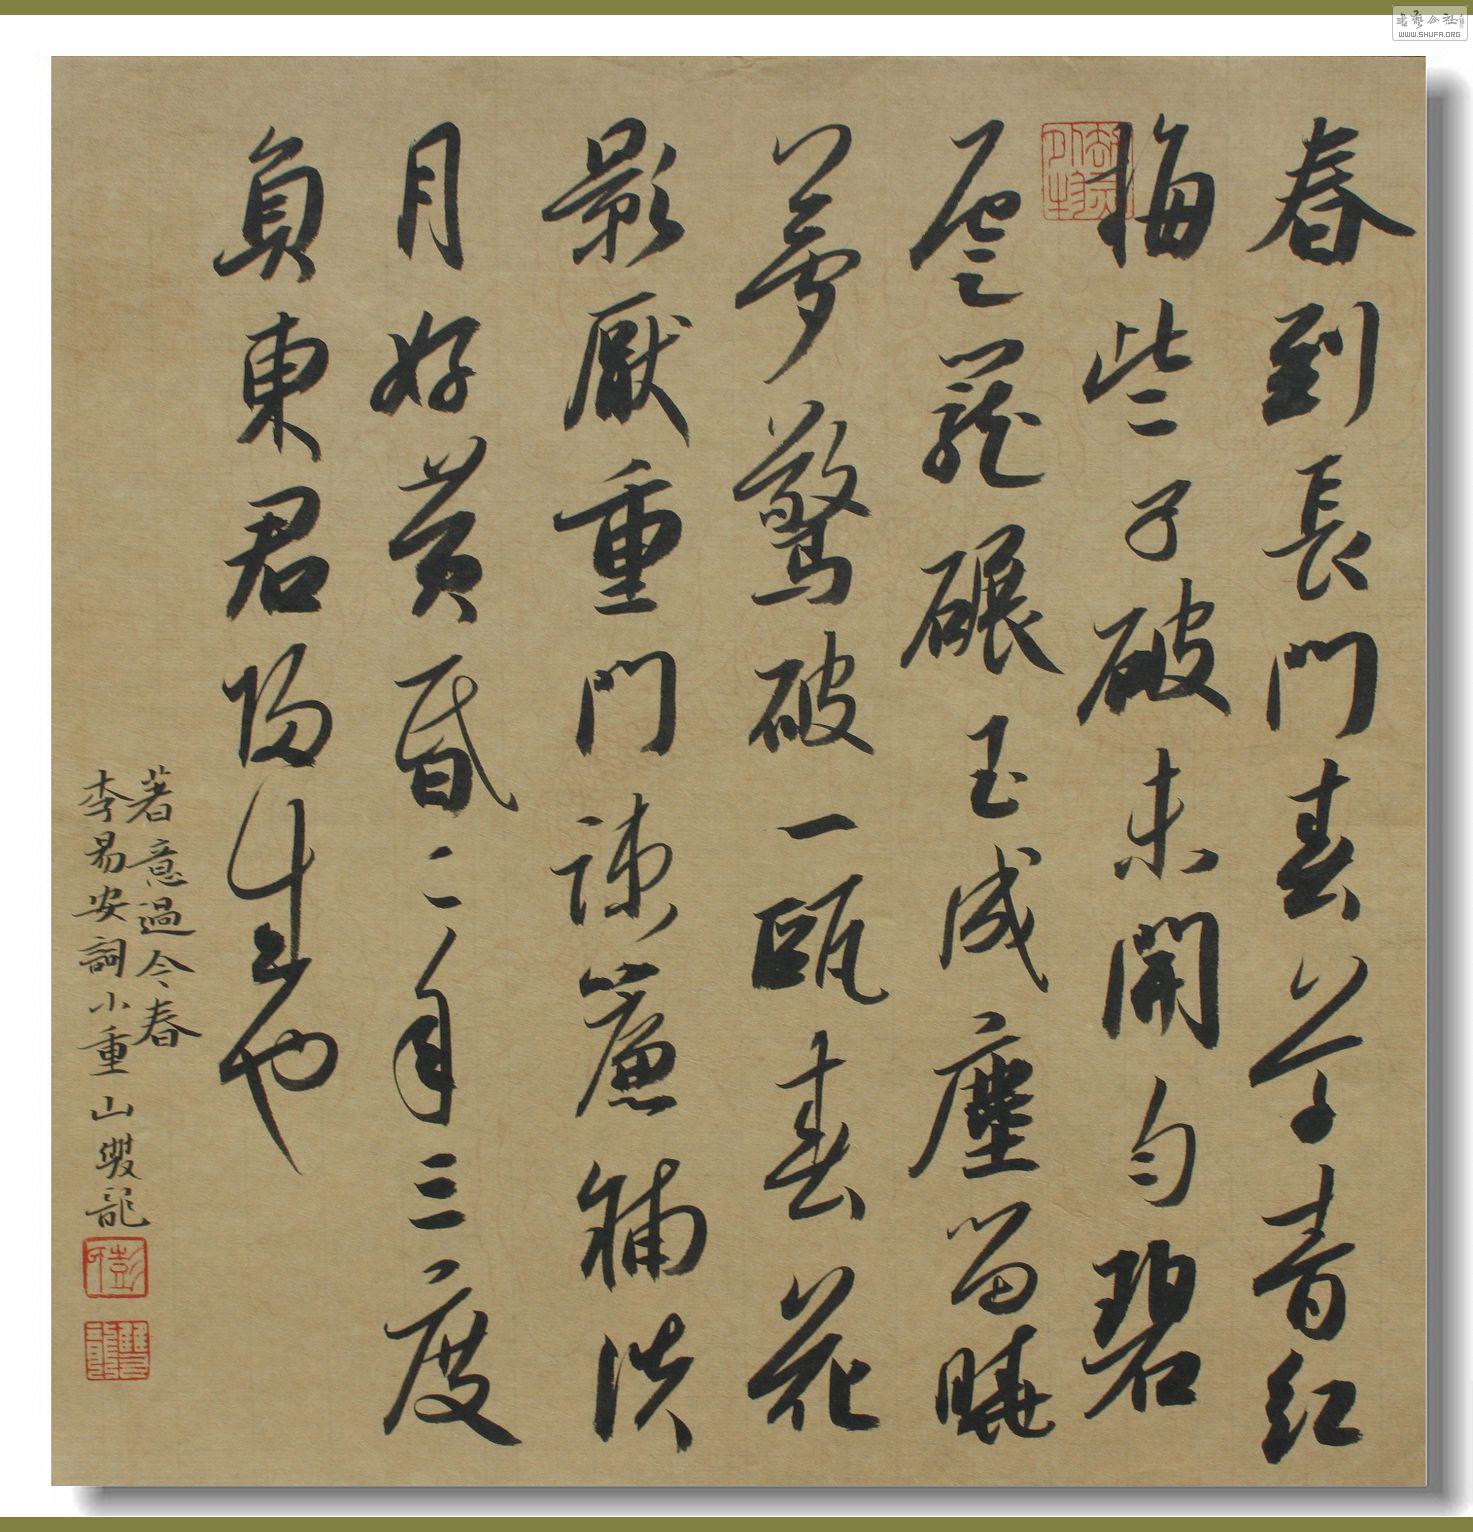 春到長門春草青紅
梅些子破未開勻碧
雲籠碾玉成塵留曉
夢驚破一甌春花
影厭重門疎簾鋪淡
月好黃昏二年三度
負東君歸來也
著意過今春
李易安詞小重山雙龍
雙龍
書藝公社
WWW.SHUFA.ORG